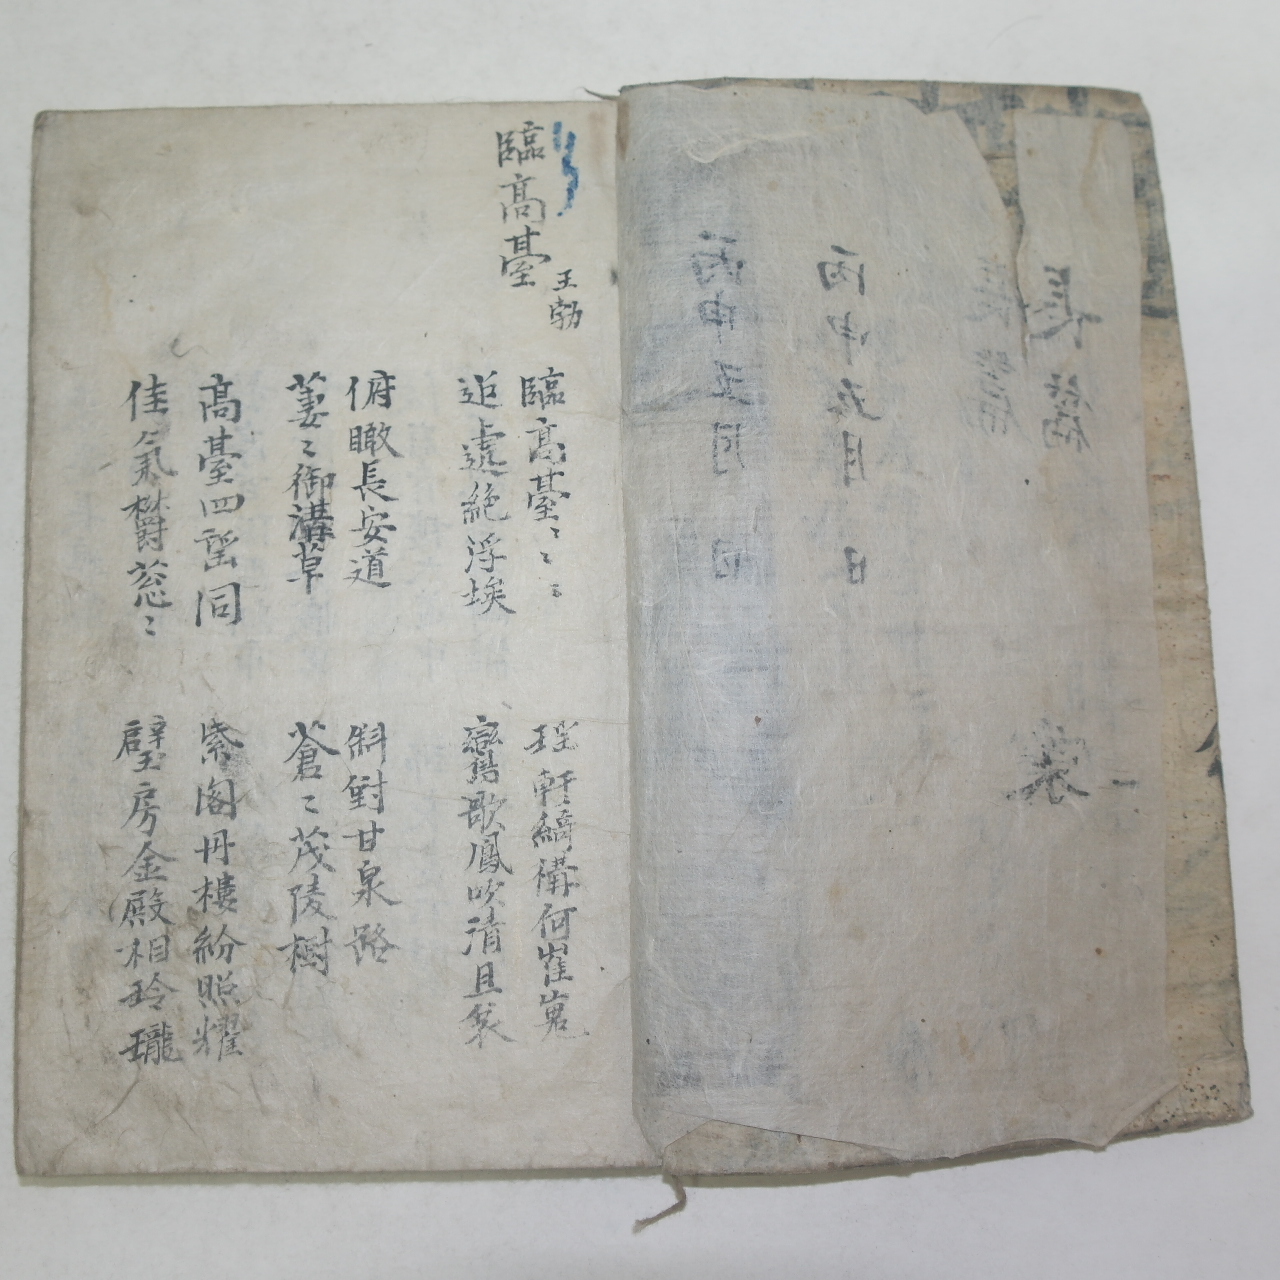 臨高臺
王勃
臨高臺〻〻〻
瑶軒綺構何崔嵬
迢遞絶浮埃
鸞歌鳳吹清且哀
俯瞰長安道
斜對甘泉路
萋〻御溝草
蒼〻茂陵樹
高臺四望同
紫閣丹樓紛照耀
佳氣欝葱〻
璧房金殿相玲瓏
長篇
丙申五月 日
丙申五月
長篇